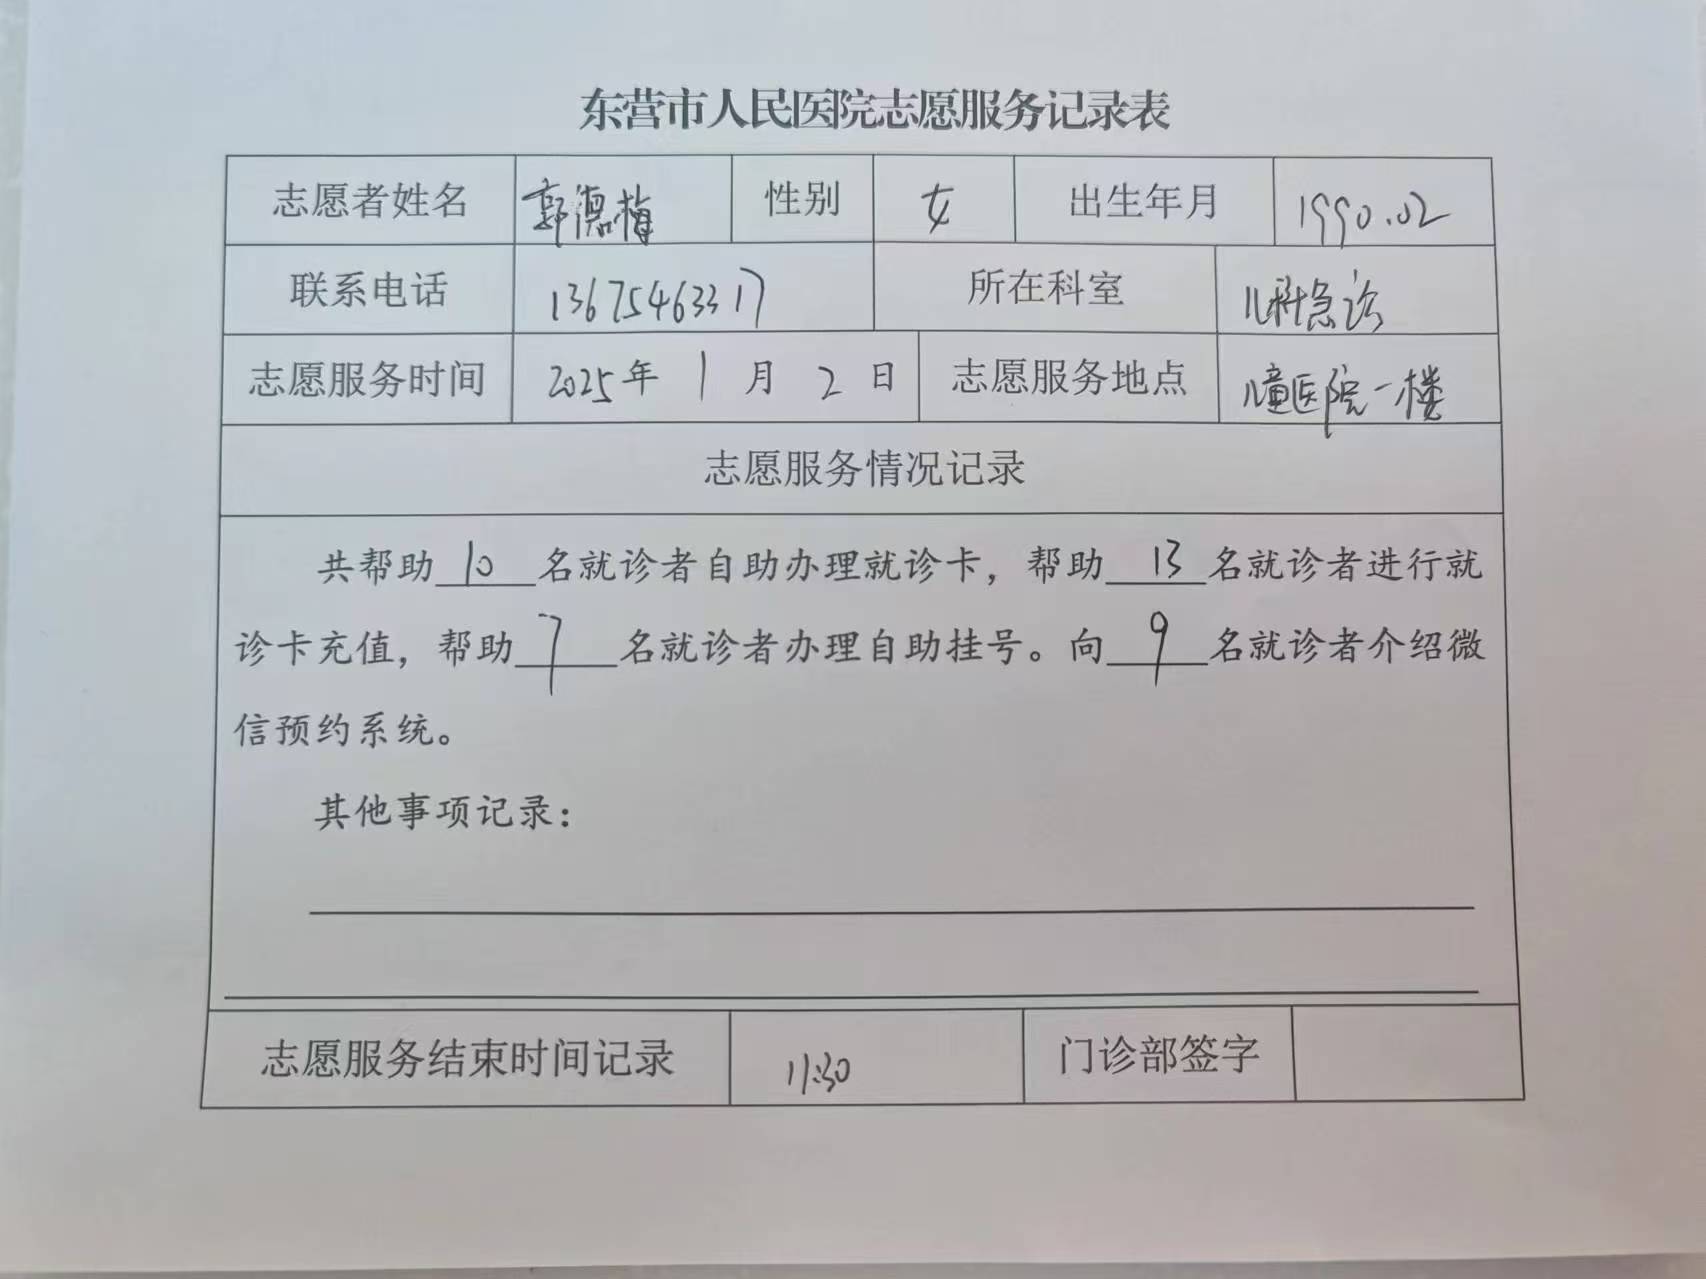 东营市人民医院志愿服务记录表
志愿者姓名 郭德梅 性别 女 出生年月 1990.02
联系电话 13675463317 所在科室 儿科急诊
志愿服务时间 2025年 1 月 2 日 志愿服务地点 儿童医院一楼
志愿服务情况记录
共帮助10名就诊者自助办理就诊卡，帮助13名就诊者进行就
诊卡充值，帮助7名就诊者办理自助挂号。向9名就诊者介绍微
信预约系统。
其他事项记录：
志愿服务结束时间记录 11:30 门诊部签字